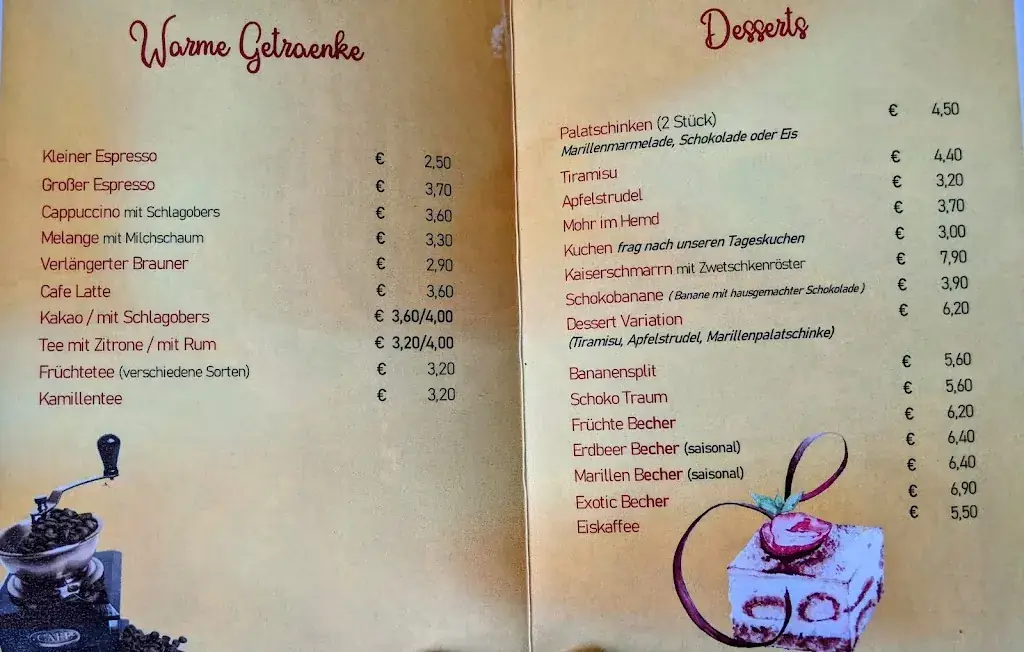 Warme Getraenke
Kleiner Espresso € 2,50
Großer Espresso € 3,70
Cappuccino mit Schlagobers € 3,60
Melange mit Milchschaum € 3,30
Verlängerter Brauner € 2,90
Cafe Latte € 3,60
Kakao / mit Schlagobers € 3,60/4,00
Tee mit Zitrone / mit Rum € 3,20/4,00
Früchtetee (verschiedene Sorten) € 3,20
Kamillentee € 3,20
CAFE
Desserts
Palatschinken (2 Stück) € 4,50
Marillenmarmelade, Schokolade oder Eis
Tiramisu € 4,40
Apfelstrudel € 3,20
Mohr im Hemd € 3,70
Kuchen frag nach unseren Tageskuchen € 3,00
Kaiserschmarrn mit Zwetschkenröster € 7,90
Schokobanane ( Banane mit hausgemachter Schokolade ) € 3,90
Dessert Variation € 6,20
(Tiramisu, Apfelstrudel, Marillenpalatschinke)
Bananensplit € 5,60
Schoko Traum € 5,60
Früchte Becher € 6,20
Erdbeer Becher (saisonal) € 6,40
Marillen Becher (saisonal) € 6,40
Exotic Becher € 6,90
Eiskaffee € 5,50